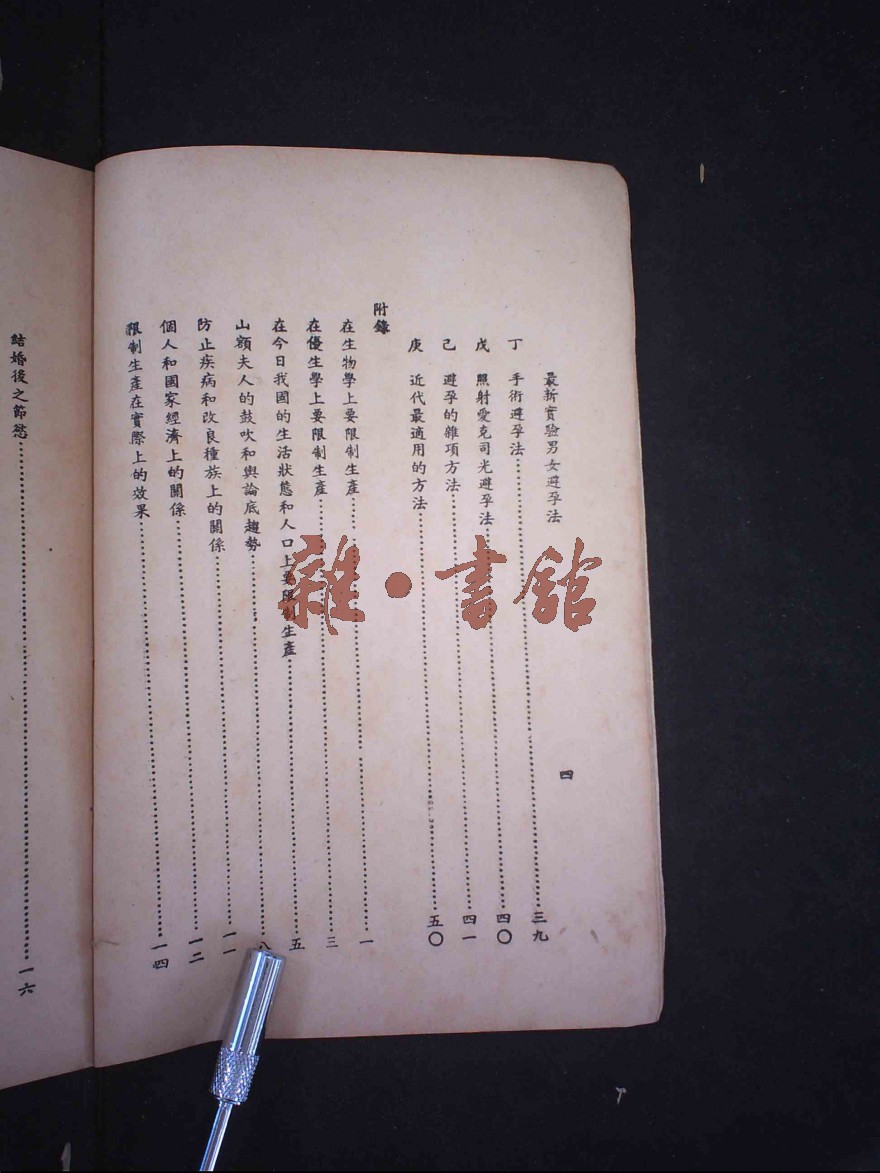 最新實驗男女避孕法
四
丁 手術避孕法 三九
戊 照射愛克司光避孕法 四〇
己 避孕的雜項方法 四一
庚 近代最適用的方法 五〇
附錄
在生物學上要限制生產 一
在優生學上要限制生產 三
在今日我國的生活狀態和人口上要限制生產 五
山額夫人的鼓吹和輿論底趨勢 八
防止疾病和改良種族上的關係 一一
個人和國家經濟上的關係 一二
限制生產在實際上的效果 一四
結婚後之節慾 一六
雜·書館